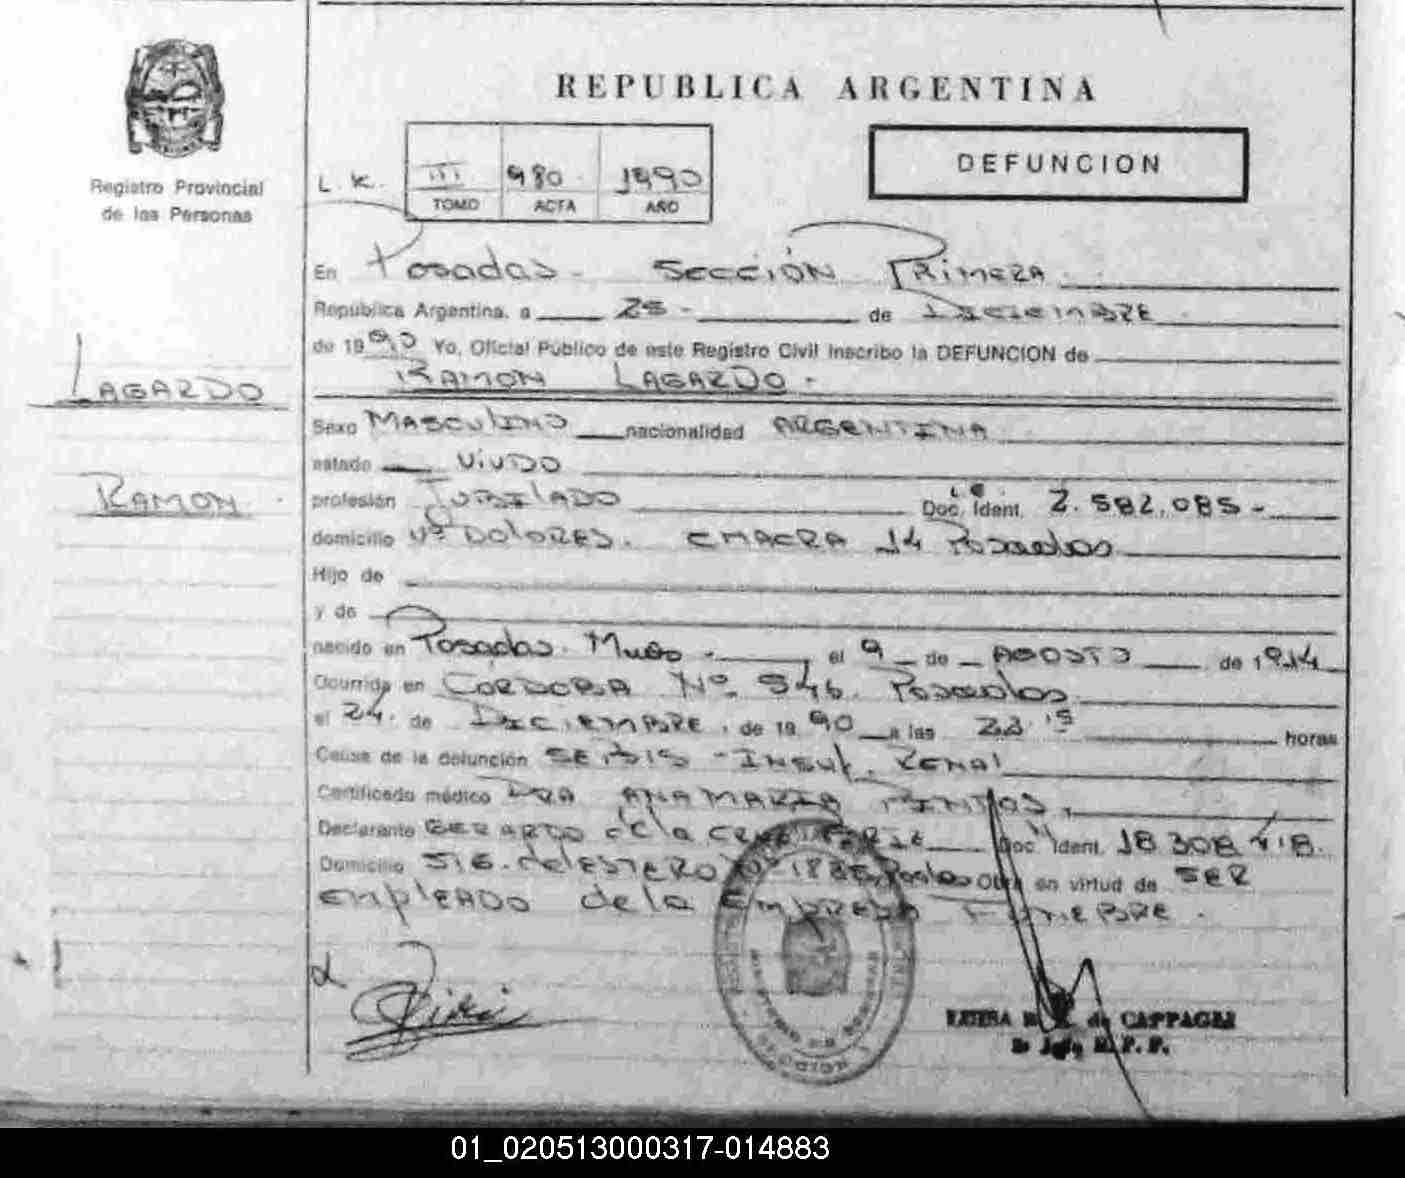 REPUBLICA ARGENTINA
DEFUNCION
Registro Provincial
de las Personas
L. K. III 980 1990
TOMO ACTA AÑO
En Posadas - SECCIÓN PRIMERA
República Argentina, a 25 - de DICIEMBRE
de 1990 Yo, Oficial Público de este Registro Civil inscribo la DEFUNCION de
RAMON LAGARDO -
LAGARDO
RAMON
Sexo MASCULINO nacionalidad ARGENTINA
estado VIUDO
profesión JUBILADO Doc. Ident. L.E. 2.582.085-
domicilio Vª DOLORES. CHACRA 14 Posadas
Hijo de
y de
nacido en Posadas. Mnes. el 9 de AGOSTO de 1914
Ocurrida en CORDOBA Nº 546. Posadas
el 24 de DICIEMBRE de 1990 a las horas
Causa de la defunción SEPSIS - INSUF. RENAL
Certificado médico DRA ANA MARIA PINTOS
Declarante GERARDO de la CRUZ Doc. Ident. 18.308.
Domicilio STG. del ESTERO Nº Posadas Obra en virtud de SER
EMPLEADO de la EMPRESA FUNEBRE.
de CAPPAGLI
01_020513000317-014883